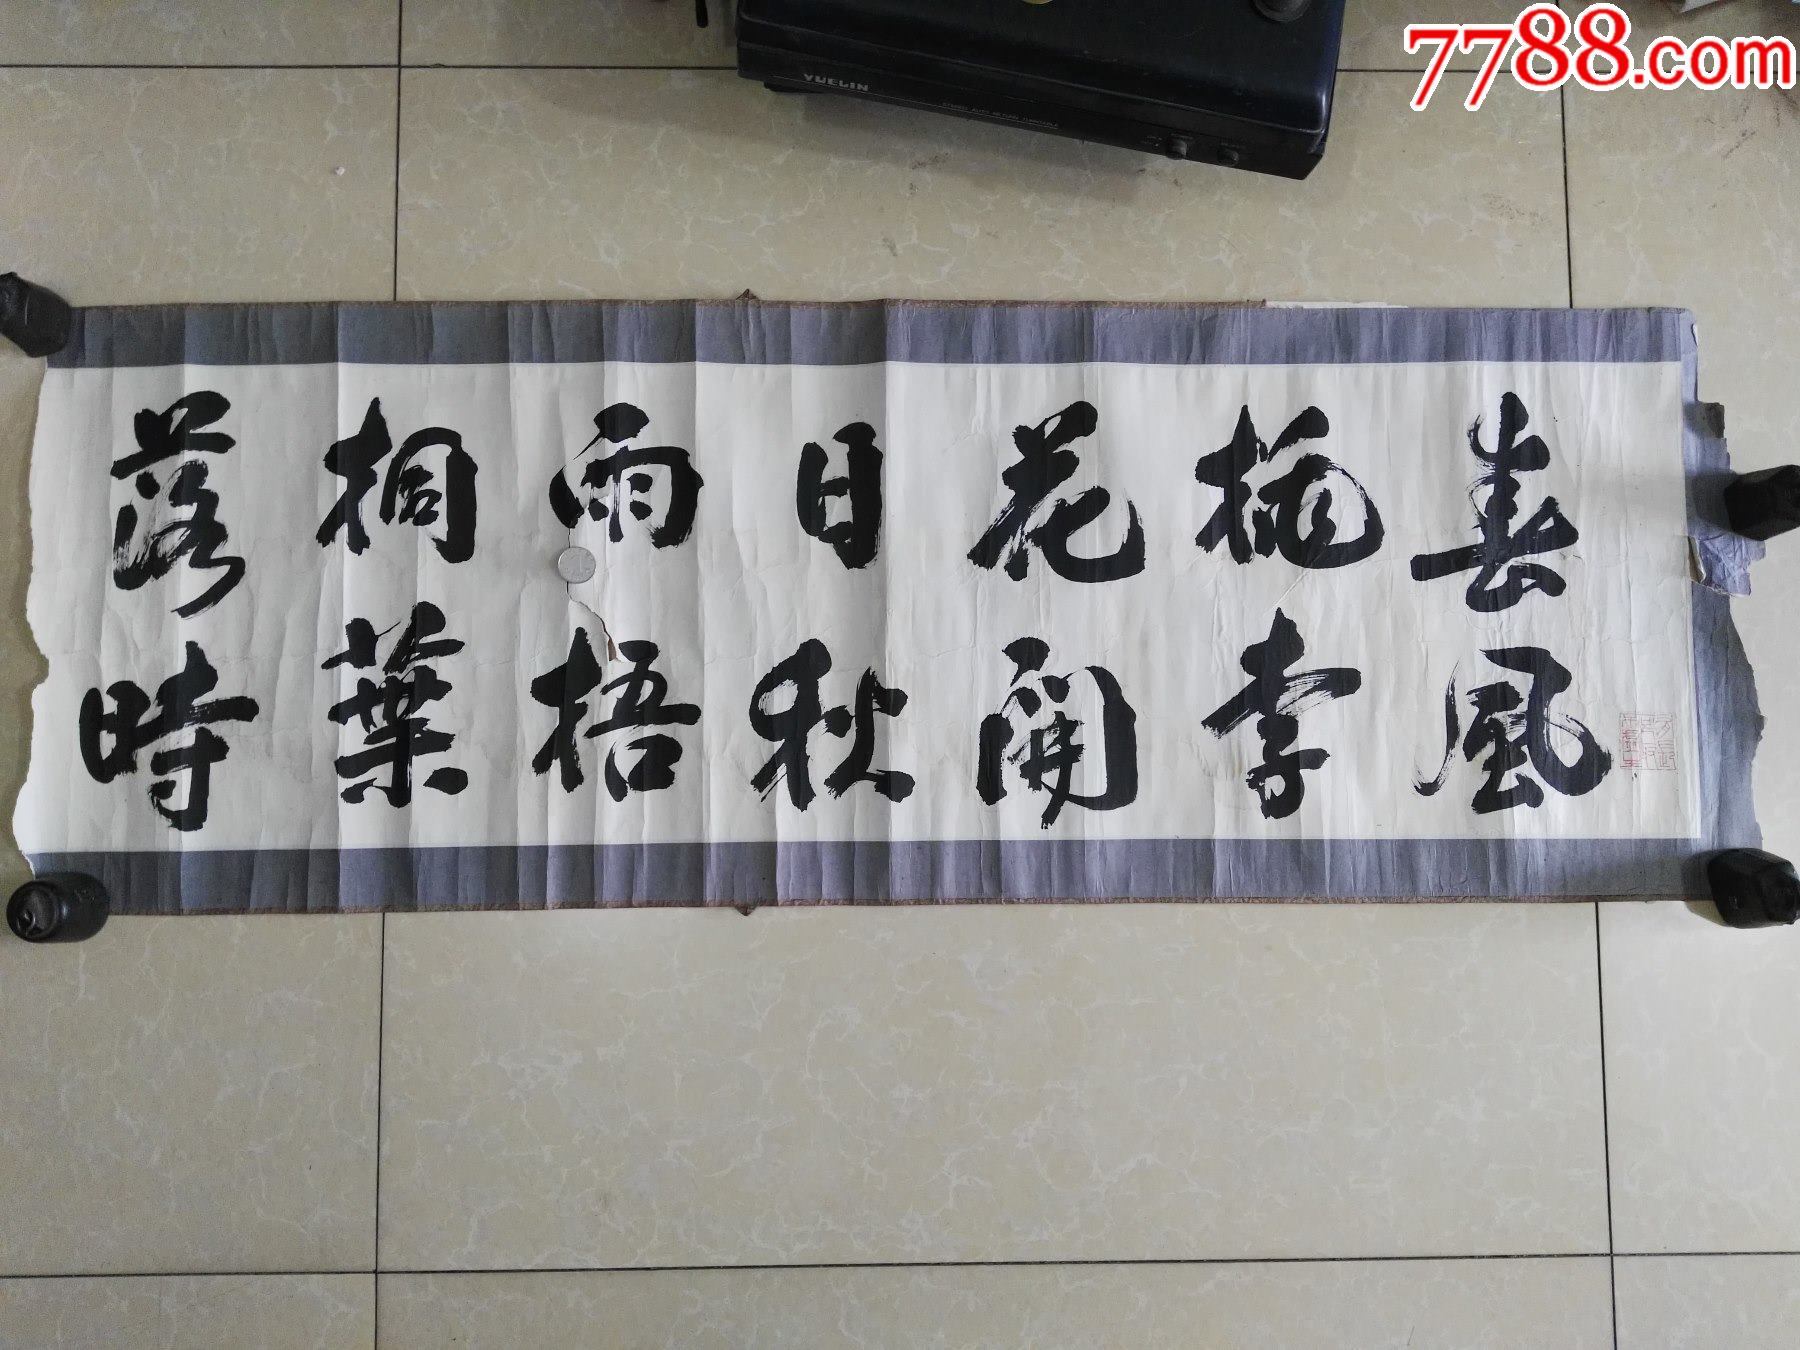 春風
桃李
花開
日秋
雨梧
桐葉
落時
YUELIN
STEREO AUTO RETURN TURNTABLE
7788.com